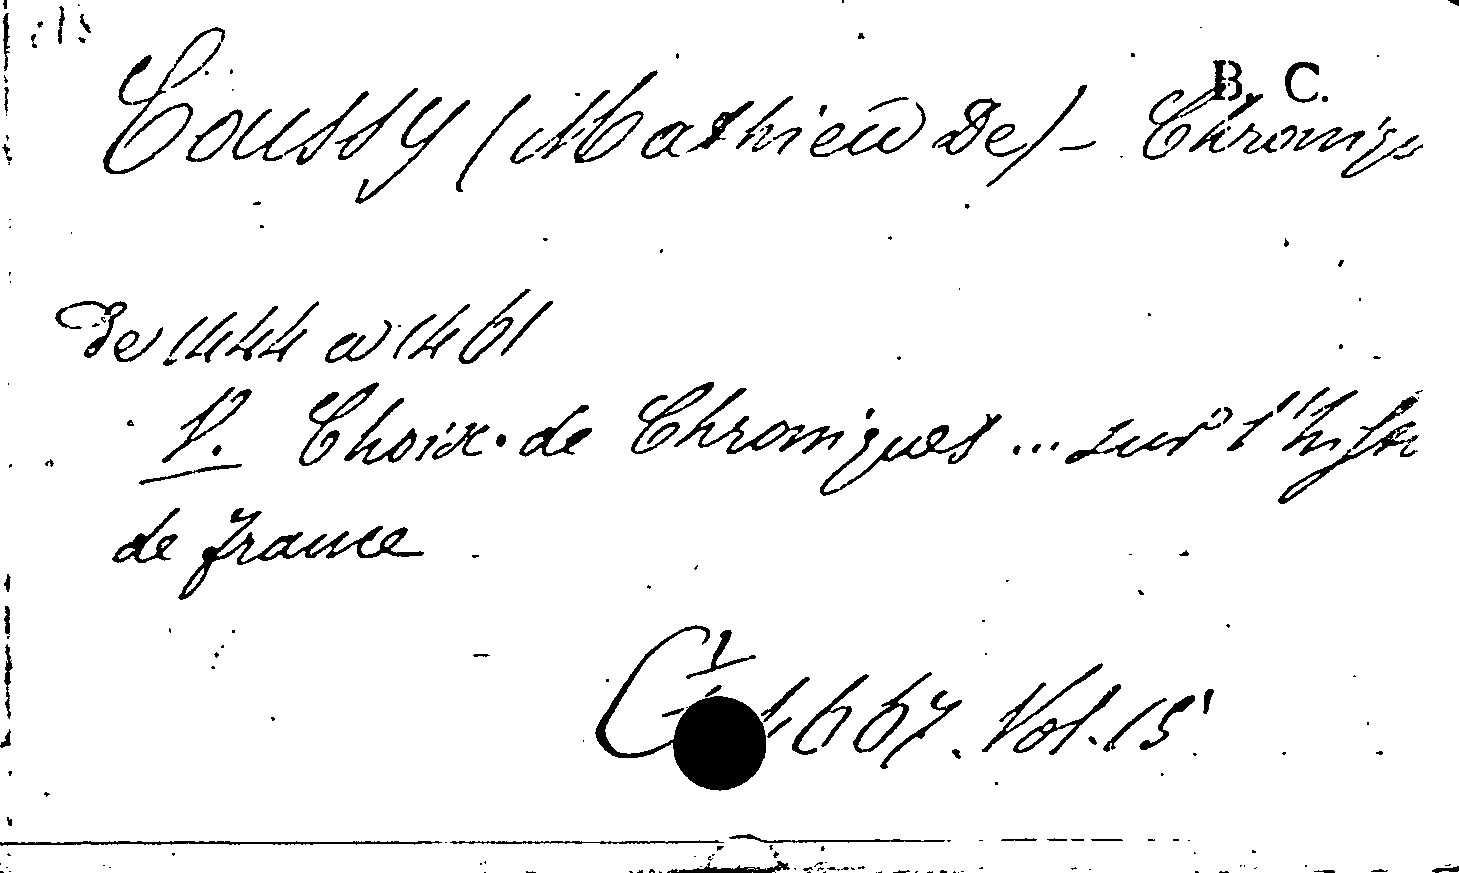 B. C.
Coussy (Mathieu De) - Chroniqu
De 1444 a 1461
V. Choix de Chroniques ... sur l'histo
de france
C 1 4667. Vol. 15